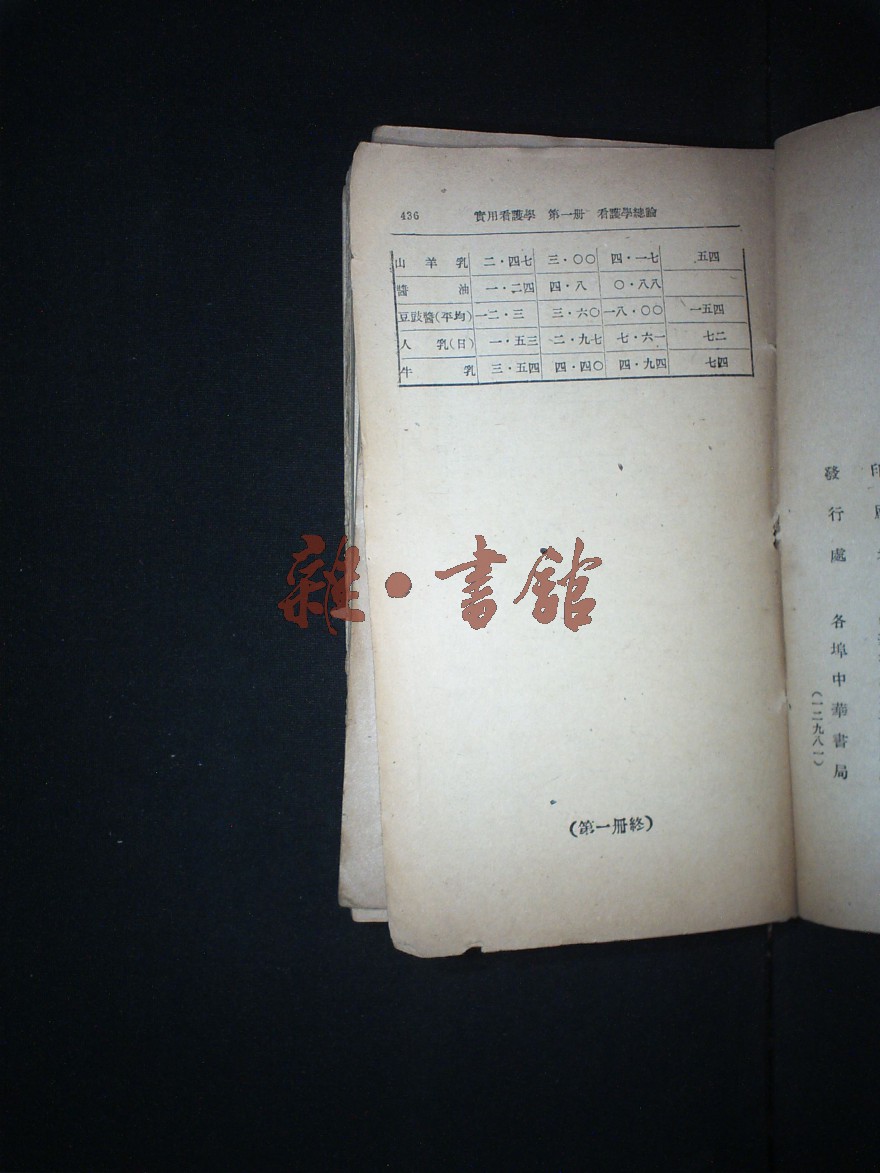 436 實用看護學 第一册 看護學總論
山羊乳 二·四七 三·〇〇 四·一七 五四
醬油 一·二四 四·八 〇·八八
豆豉醬(平均) 一二·三 三·六〇 一八·〇〇 一五四
人乳(日) 一·五三 二·九七 七·六一 七二
牛乳 三·五四 四·四〇 四·九四 七四
(第一册終)
雜·書館
印
發行處 各埠中華書局
(一二九八一)